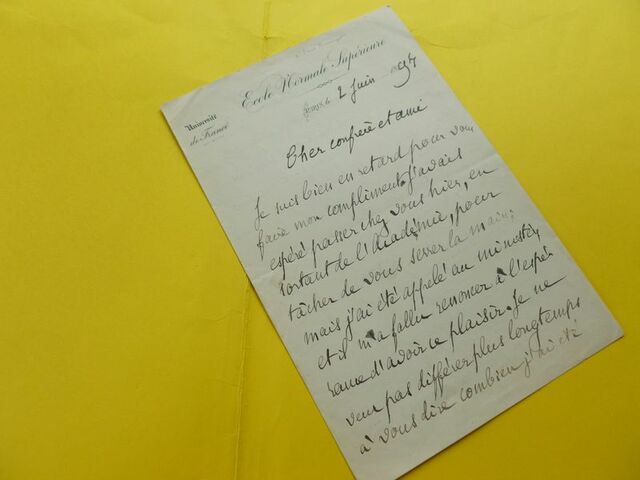 Ecole Normale Supérieure
Université
de France
Paris, le 2 Juin 1894
Cher confrère et ami
Je suis bien en retard pour vous
faire mon compliment. J'avais
espéré passer chez vous hier, en
sortant de l'Académie, pour
tâcher de vous serrer la main;
mais j'ai été appelé au ministère
et il m'a fallu renoncer à l'espé
rance d'avoir ce plaisir. Je ne
veux pas différer plus longtemps
à vous dire combien j'ai été